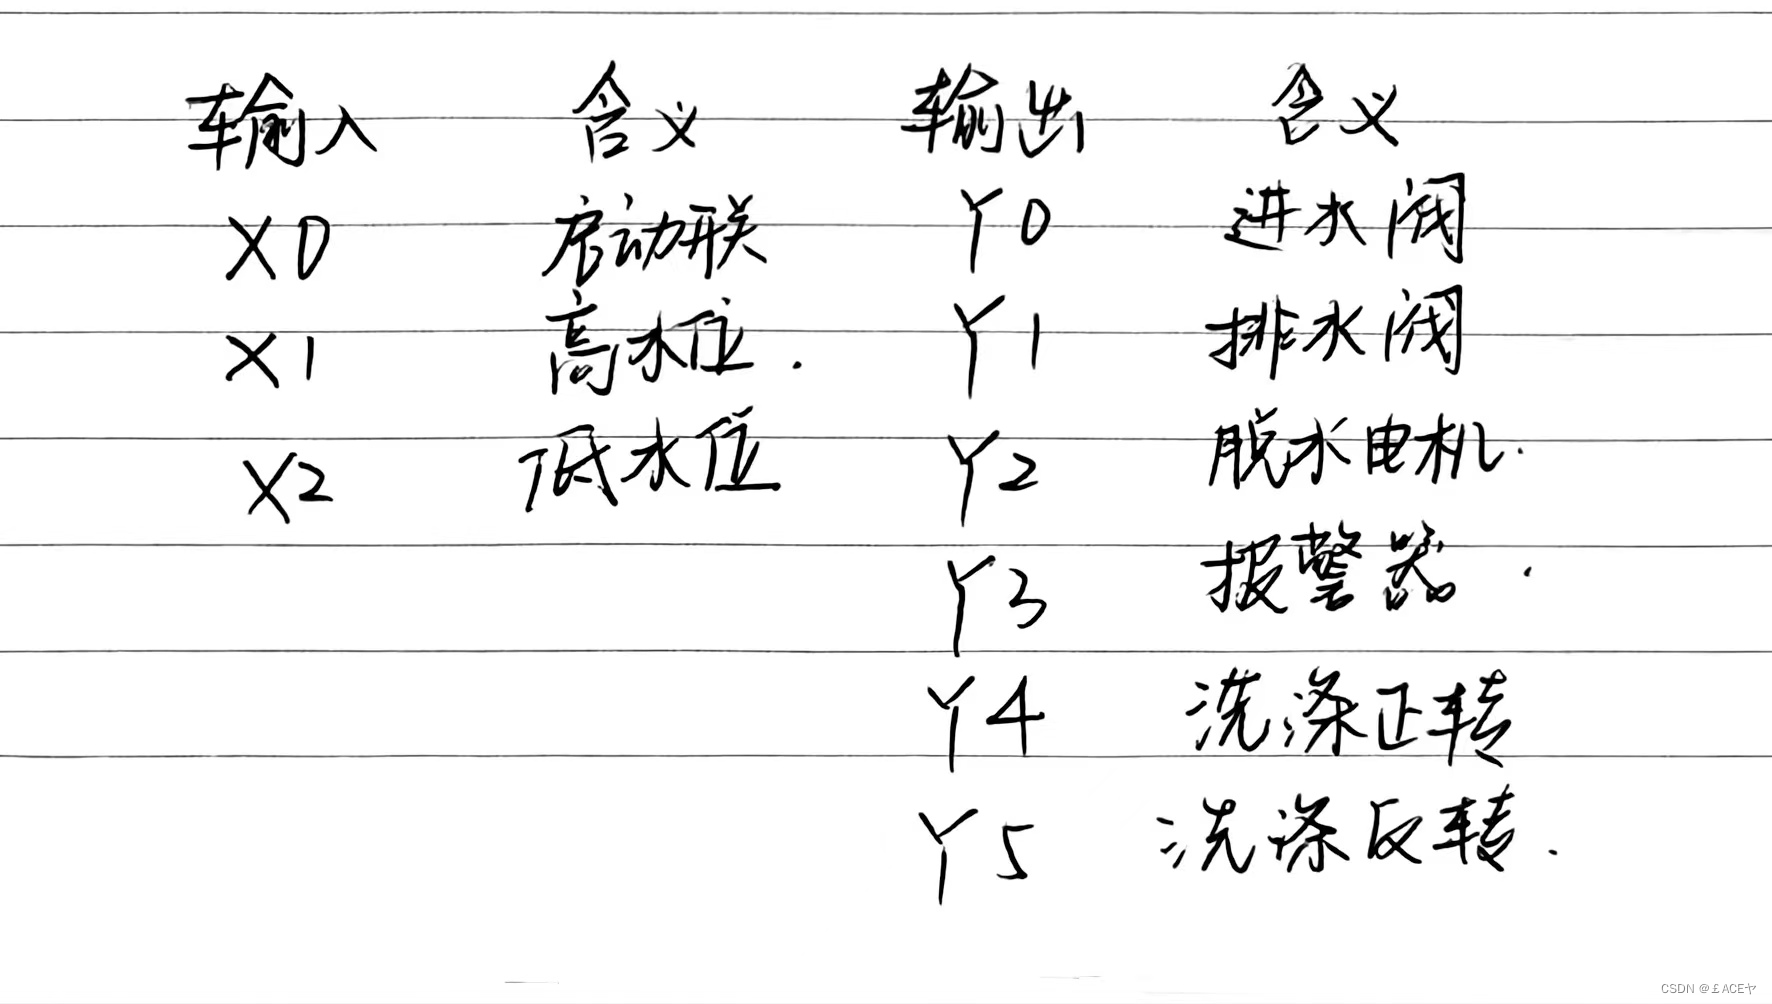 输入 含义 输出 含义
X0 启动开关 Y0 进水阀
X1 高水位. Y1 排水阀
X2 低水位 Y2 脱水电机.
Y3 报警器.
Y4 洗涤正转
Y5 洗涤反转.
CSDN @£ACEヤ